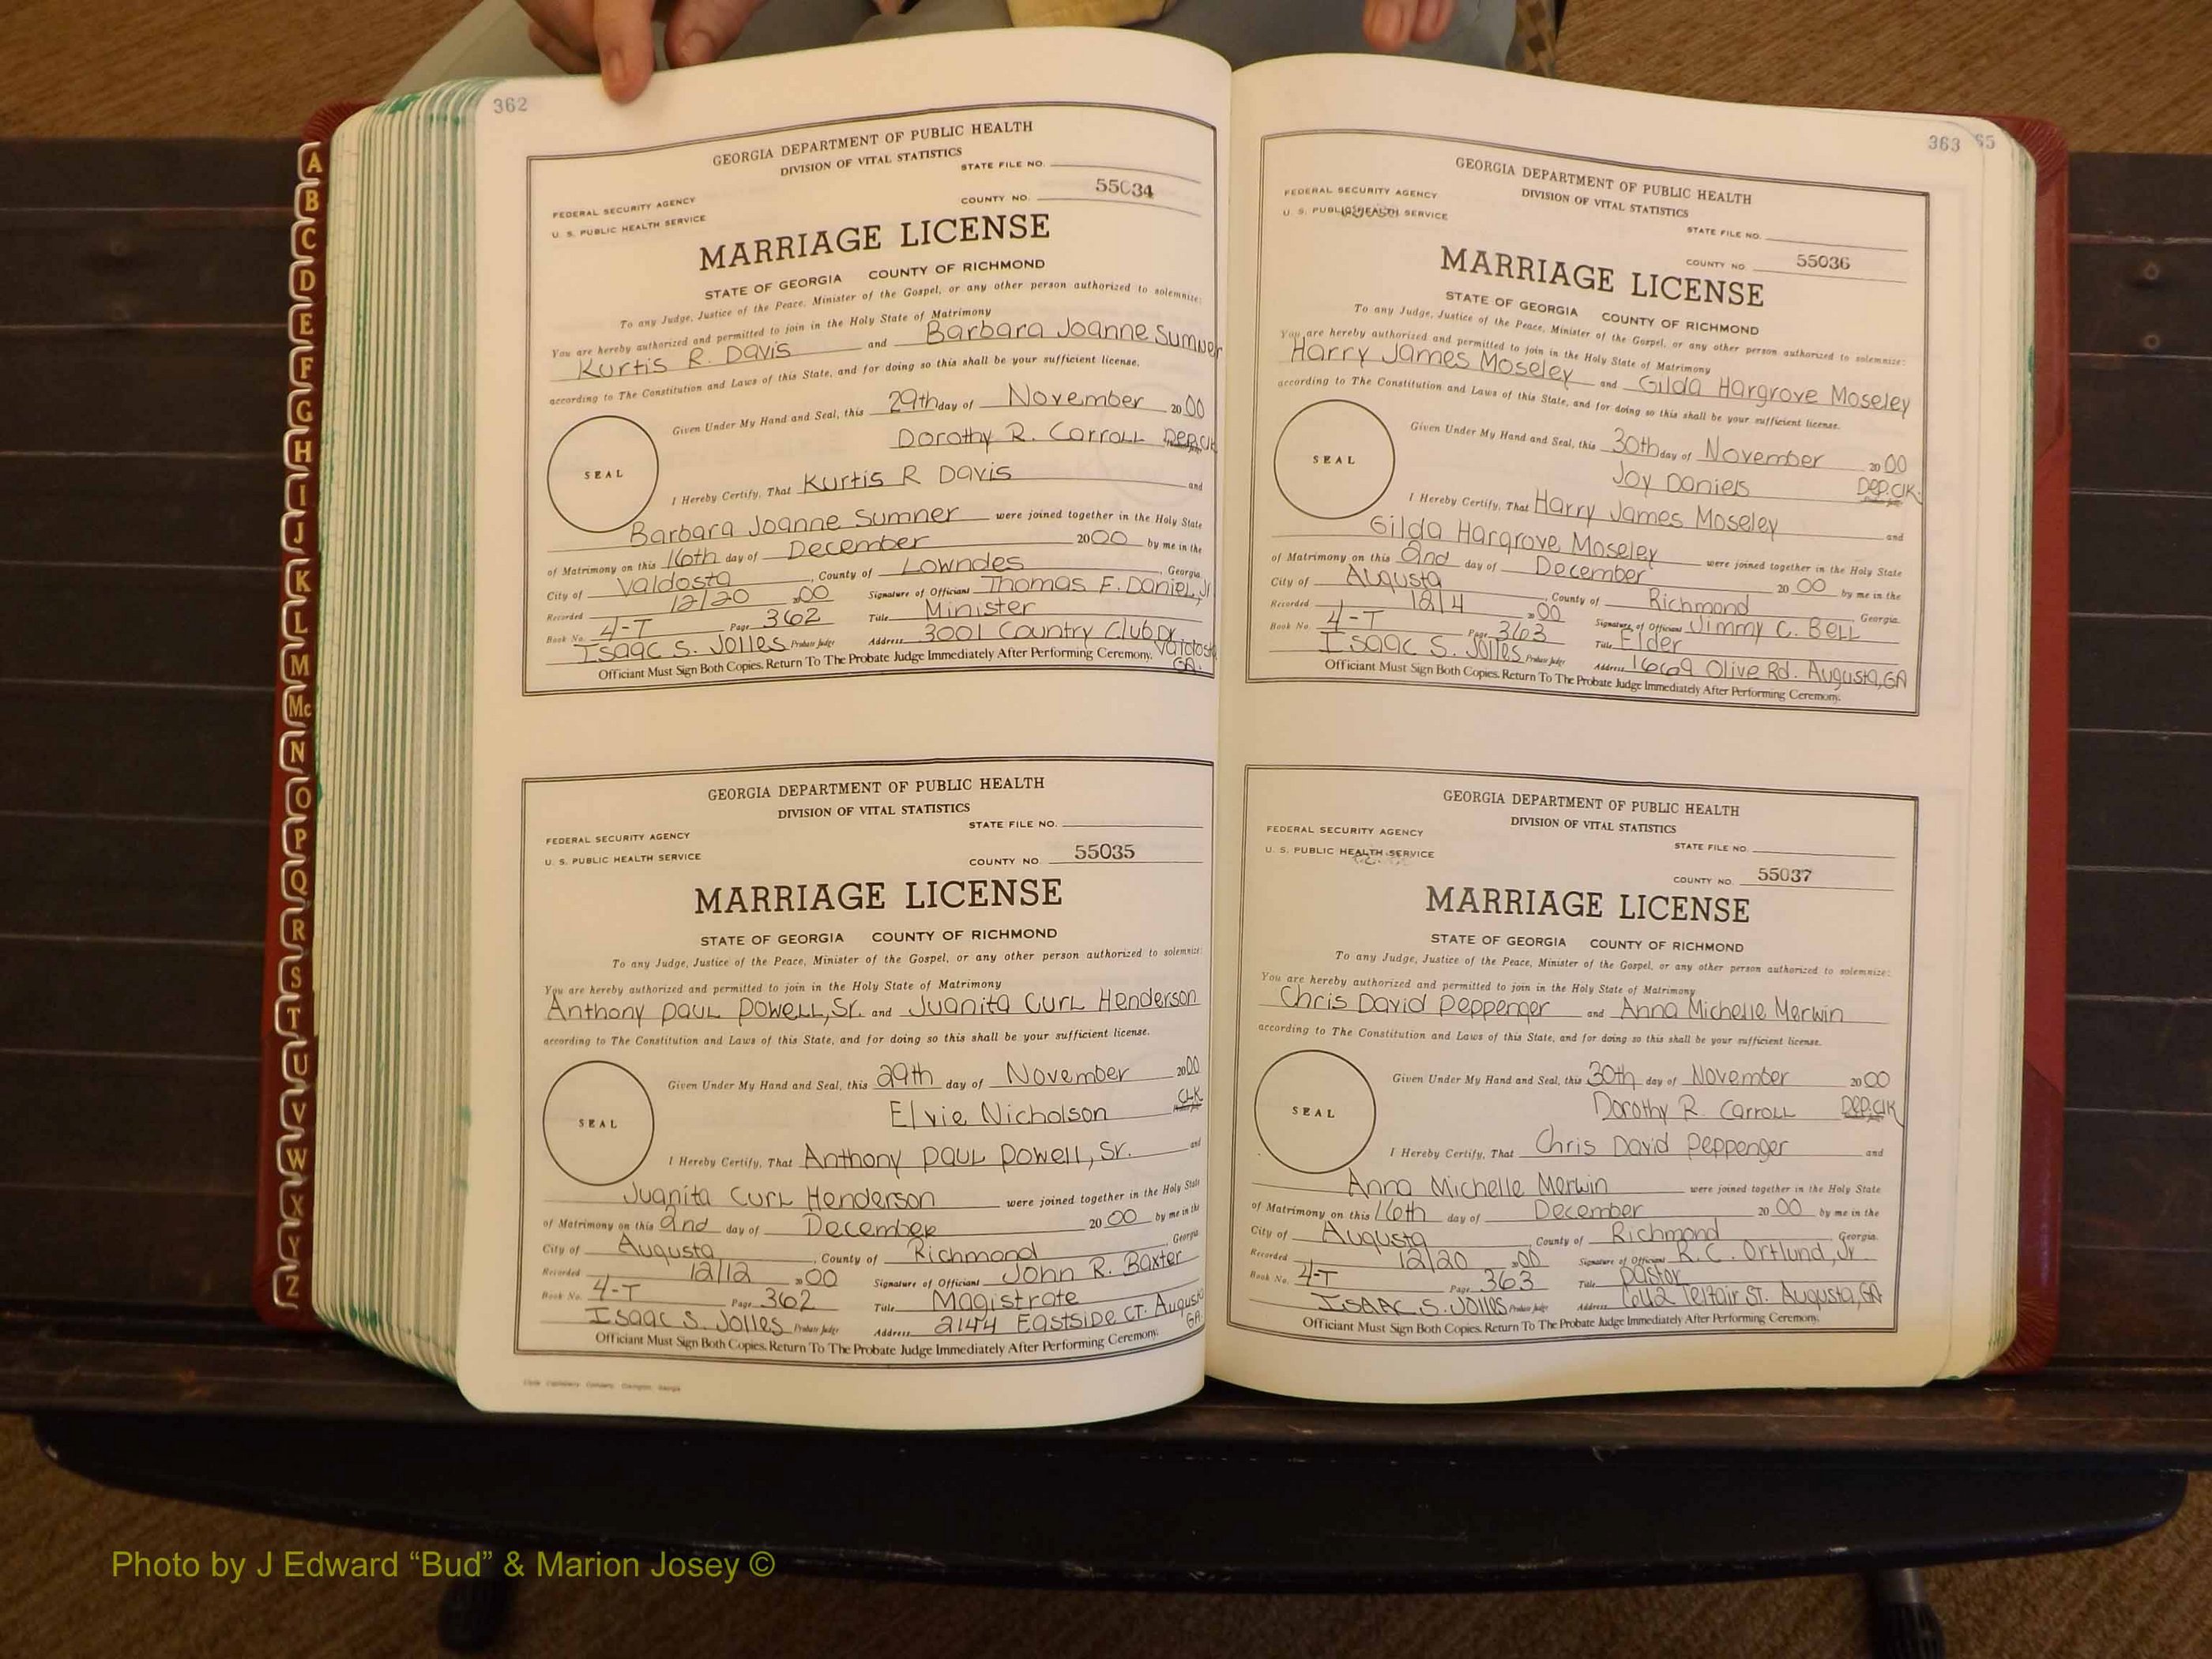 362
GEORGIA DEPARTMENT OF PUBLIC HEALTH
DIVISION OF VITAL STATISTICS
STATE FILE NO.
FEDERAL SECURITY AGENCY
U. S. PUBLIC HEALTH SERVICE
COUNTY NO. 55034
MARRIAGE LICENSE
STATE OF GEORGIA COUNTY OF RICHMOND
To any Judge, Justice of the Peace, Minister of the Gospel, or any other person authorized to solemnize:
You are hereby authorized and permitted to join in the Holy State of Matrimony
Kurtis R. Davis and Barbara Joanne Sumner
according to The Constitution and Laws of this State, and for doing so this shall be your sufficient license.
Given Under My Hand and Seal, this 29th day of November 2000
Dorothy R. Carroll Dep. Clk
SEAL
I Hereby Certify, That Kurtis R Davis and
Barbara Joanne Sumner were joined together in the Holy State
of Matrimony on this 16th day of December 2000 by me in the
City of Valdosta, County of Lowndes, Georgia
Recorded 12/20 2000 Signature of Officiant Thomas F. Daniel, Jr
Book No. 4-T Page 362 Title Minister
Isaac S. Jolles Probate Judge Address 3001 Country Club Dr Valdosta GA.
Officiant Must Sign Both Copies. Return To The Probate Judge Immediately After Performing Ceremony.
GEORGIA DEPARTMENT OF PUBLIC HEALTH
DIVISION OF VITAL STATISTICS
STATE FILE NO.
FEDERAL SECURITY AGENCY
U. S. PUBLIC HEALTH SERVICE
COUNTY NO. 55035
MARRIAGE LICENSE
STATE OF GEORGIA COUNTY OF RICHMOND
To any Judge, Justice of the Peace, Minister of the Gospel, or any other person authorized to solemnize:
You are hereby authorized and permitted to join in the Holy State of Matrimony
Anthony Paul Powell, Sr. and Juanita Curl Henderson
according to The Constitution and Laws of this State, and for doing so this shall be your sufficient license.
Given Under My Hand and Seal, this 29th day of November 2000
Elvie Nicholson CLK
SEAL
I Hereby Certify, That Anthony Paul Powell, Sr. and
Juanita Curl Henderson were joined together in the Holy State
of Matrimony on this 2nd day of December 2000 by me in the
City of Augusta, County of Richmond, Georgia
Recorded 12/12 2000 Signature of Officiant John R. Baxter
Book No. 4-T Page 362 Title Magistrate
Isaac S. Jolles Probate Judge Address 2144 Eastside CT. Augusta GA.
Officiant Must Sign Both Copies. Return To The Probate Judge Immediately After Performing Ceremony.
363 65
GEORGIA DEPARTMENT OF PUBLIC HEALTH
DIVISION OF VITAL STATISTICS
STATE FILE NO.
FEDERAL SECURITY AGENCY
U. S. PUBLIC HEALTH SERVICE
COUNTY NO. 55036
MARRIAGE LICENSE
STATE OF GEORGIA COUNTY OF RICHMOND
To any Judge, Justice of the Peace, Minister of the Gospel, or any other person authorized to solemnize:
You are hereby authorized and permitted to join in the Holy State of Matrimony
Harry James Moseley and Gilda Hargrove Moseley
according to The Constitution and Laws of this State, and for doing so this shall be your sufficient license.
Given Under My Hand and Seal, this 30th day of November 2000
Joy Daniels Dep. Clk.
SEAL
I Hereby Certify, That Harry James Moseley and
Gilda Hargrove Moseley were joined together in the Holy State
of Matrimony on this 2nd day of December 2000 by me in the
City of Augusta, County of Richmond, Georgia.
Recorded 12/4 2000 Signature of Officiant Jimmy C. Bell
Book No. 4-T Page 363 Title Elder
Isaac S. Jolles Probate Judge Address 1669 Olive Rd. Augusta, GA
Officiant Must Sign Both Copies. Return To The Probate Judge Immediately After Performing Ceremony.
GEORGIA DEPARTMENT OF PUBLIC HEALTH
DIVISION OF VITAL STATISTICS
STATE FILE NO.
FEDERAL SECURITY AGENCY
U. S. PUBLIC HEALTH SERVICE
COUNTY NO. 55037
MARRIAGE LICENSE
STATE OF GEORGIA COUNTY OF RICHMOND
To any Judge, Justice of the Peace, Minister of the Gospel, or any other person authorized to solemnize:
You are hereby authorized and permitted to join in the Holy State of Matrimony
Chris David Peppenger and Anna Michelle Merwin
according to The Constitution and Laws of this State, and for doing so this shall be your sufficient license.
Given Under My Hand and Seal, this 30th day of November 2000
Dorothy R. Carroll Dep. Clk
SEAL
I Hereby Certify, That Chris David Peppenger and
Anna Michelle Merwin were joined together in the Holy State
of Matrimony on this 16th day of December 2000 by me in the
City of Augusta, County of Richmond, Georgia.
Recorded 12/20 2000 Signature of Officiant R. C. Ortlund, Jr
Book No. 4-T Page 363 Title Pastor
ISAAC S. Jolles Probate Judge Address 642 Telfair St. Augusta, GA
Officiant Must Sign Both Copies. Return To The Probate Judge Immediately After Performing Ceremony.
A
B
C
D
E
F
G
H
I
J
K
L
M
Mc
N
O
P
Q
R
S
T
U
V
W
X
Y
Z
Photo by J Edward “Bud” & Marion Josey ©